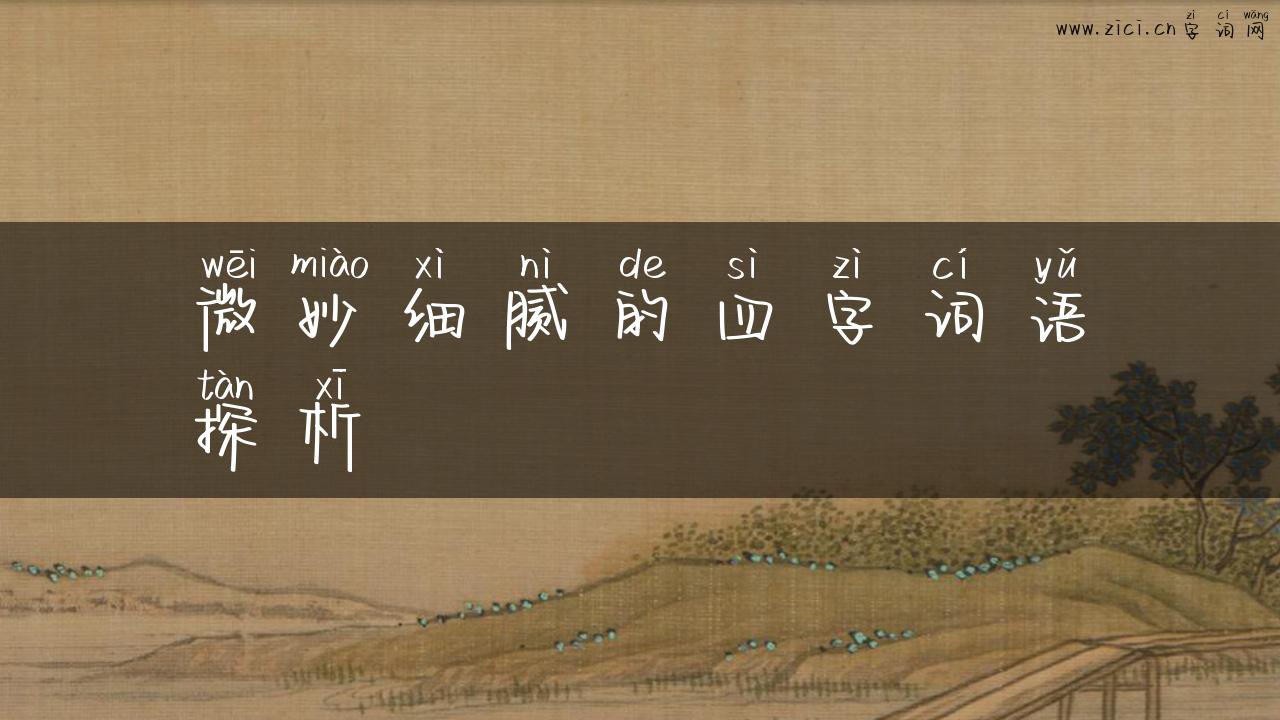 zì cí wǎng
www.zici.cn字词网
wēi miào xì nì de sì zì cí yǔ
微妙细腻的四字词语
tàn xī
探析